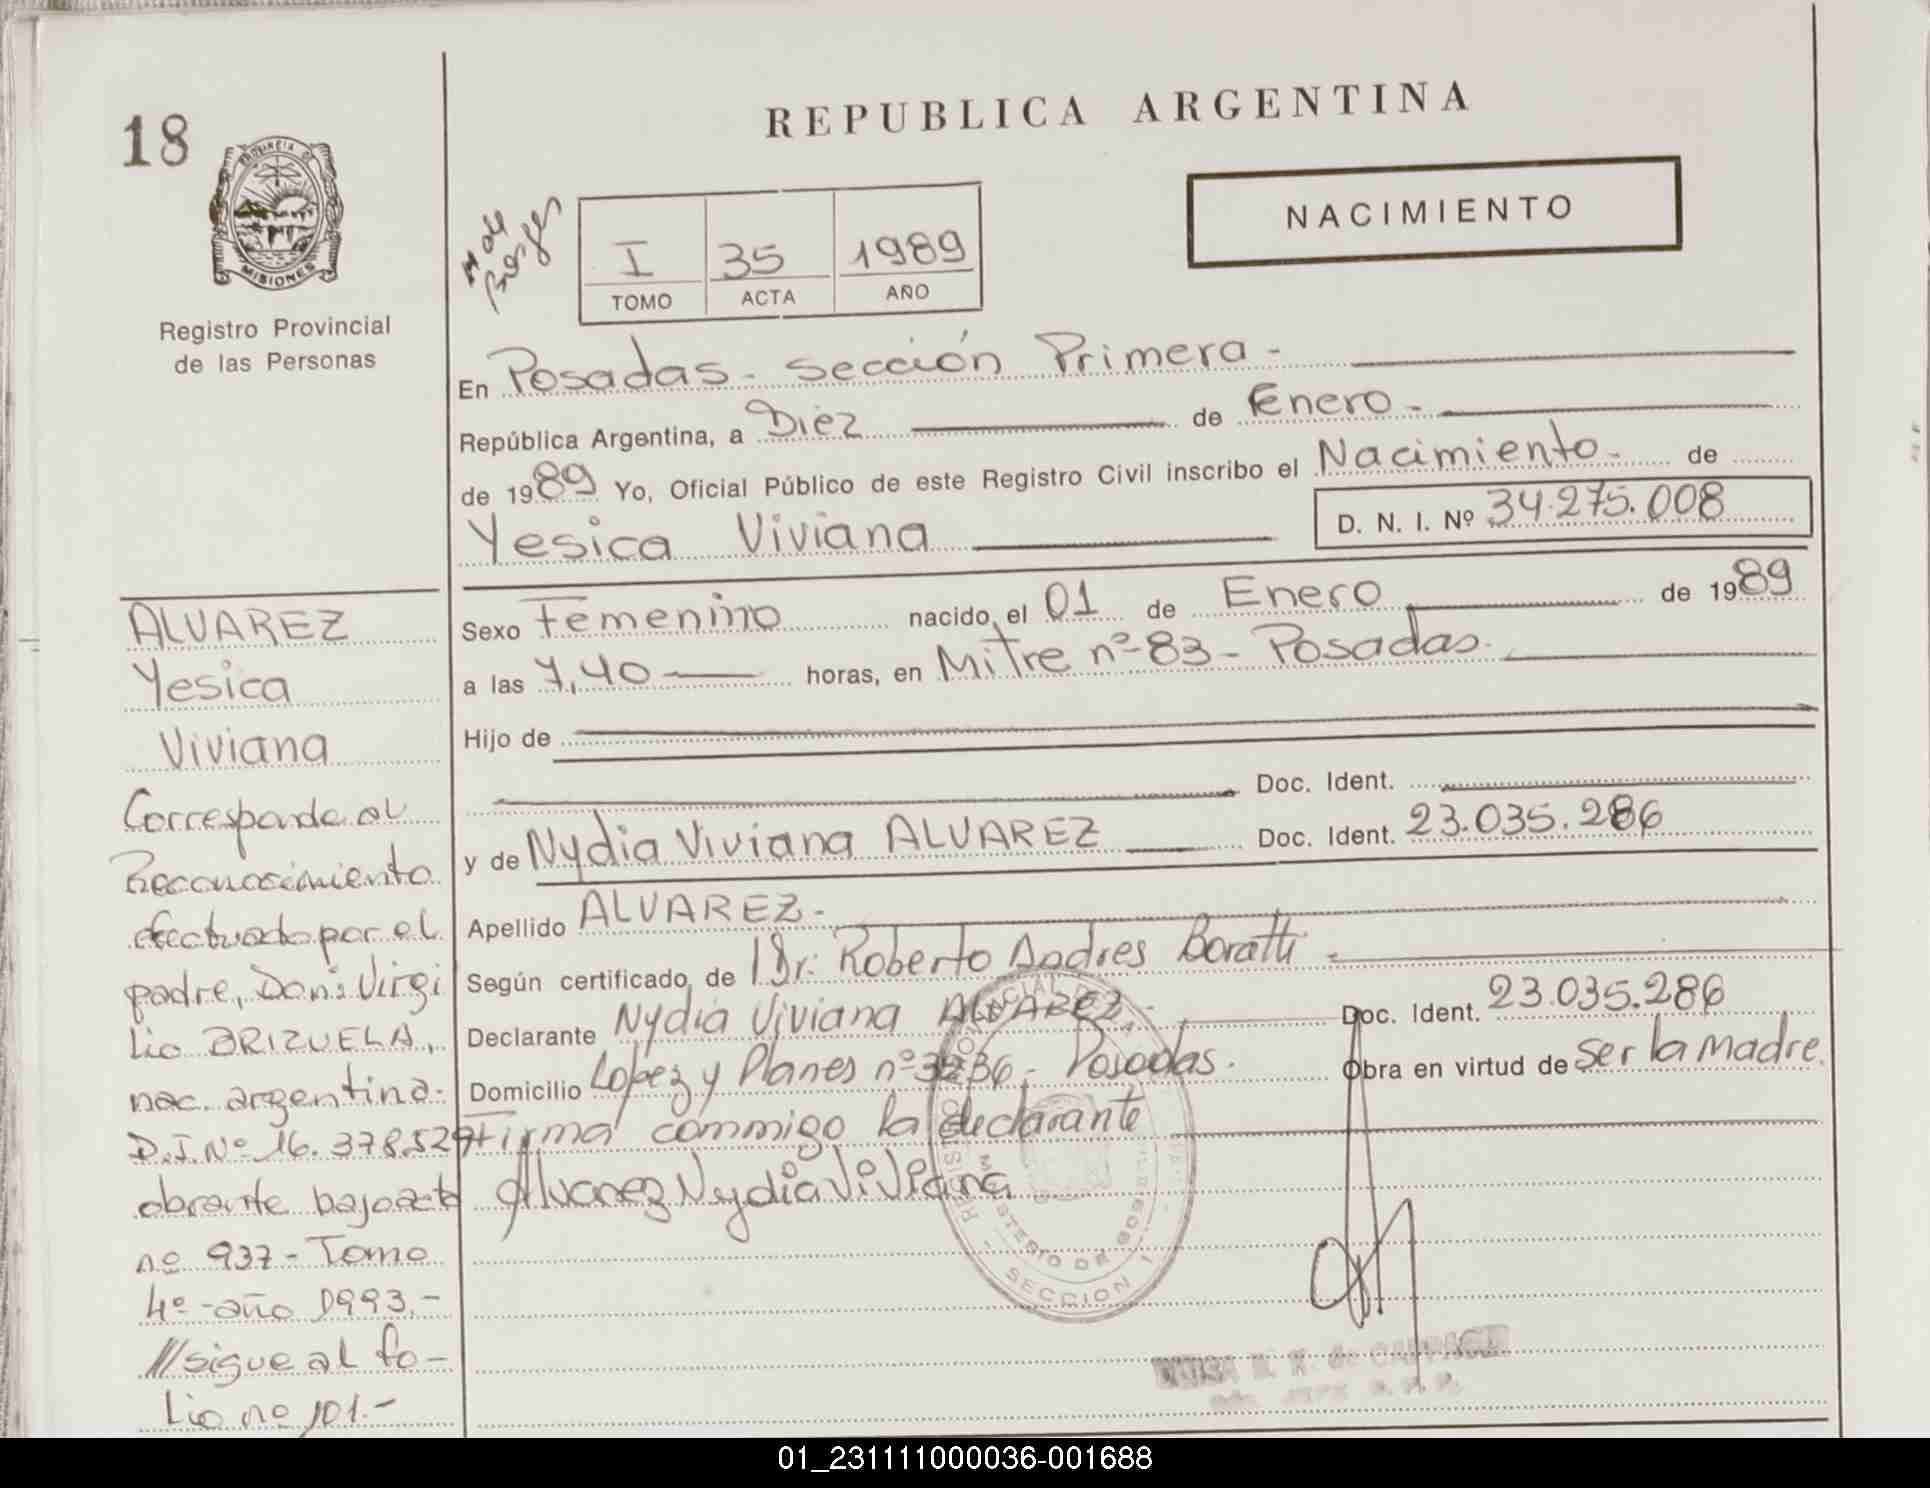 18
PROVINCIA DE
MISIONES
Registro Provincial
de las Personas
REPUBLICA ARGENTINA
NACIMIENTO
I 35 1989
TOMO ACTA AÑO
En Posadas - Sección Primera -
República Argentina, a Diez de Enero -
de 1989 Yo, Oficial Público de este Registro Civil inscribo el Nacimiento - de
Yesica Viviana
D. N. I. Nº 34.275.008
Sexo Femenino nacido el 01 de Enero de 1989
a las 7,40 horas, en Mitre nº 83 - Posadas.
Hijo de
Doc. Ident.
y de Nydia Viviana ALVAREZ Doc. Ident. 23.035.286
Apellido ALVAREZ -
Según certificado de Dr: Roberto Andres Boratti
Declarante Nydia Viviana ALVAREZ - Doc. Ident. 23.035.286
Domicilio Lopez y Planes nº 3236 - Posadas. Obra en virtud de ser la madre.
Firma conmigo la declarante
Alvarez Nydia Viviana
ALVAREZ
Yesica
Viviana
Corresponde al
Reconocimiento
efectuado por el
padre, Don: Virgi
lio BRIZUELA,
nac. argentina.
D.I. Nº 16.378.529
obrante bajo acta
nº 937 - Tomo
4º - año 1993.-
//sigue al fo-
lio nº 101.-
MINISTERIO DE GOB
SECCION 1
01_231111000036-001688